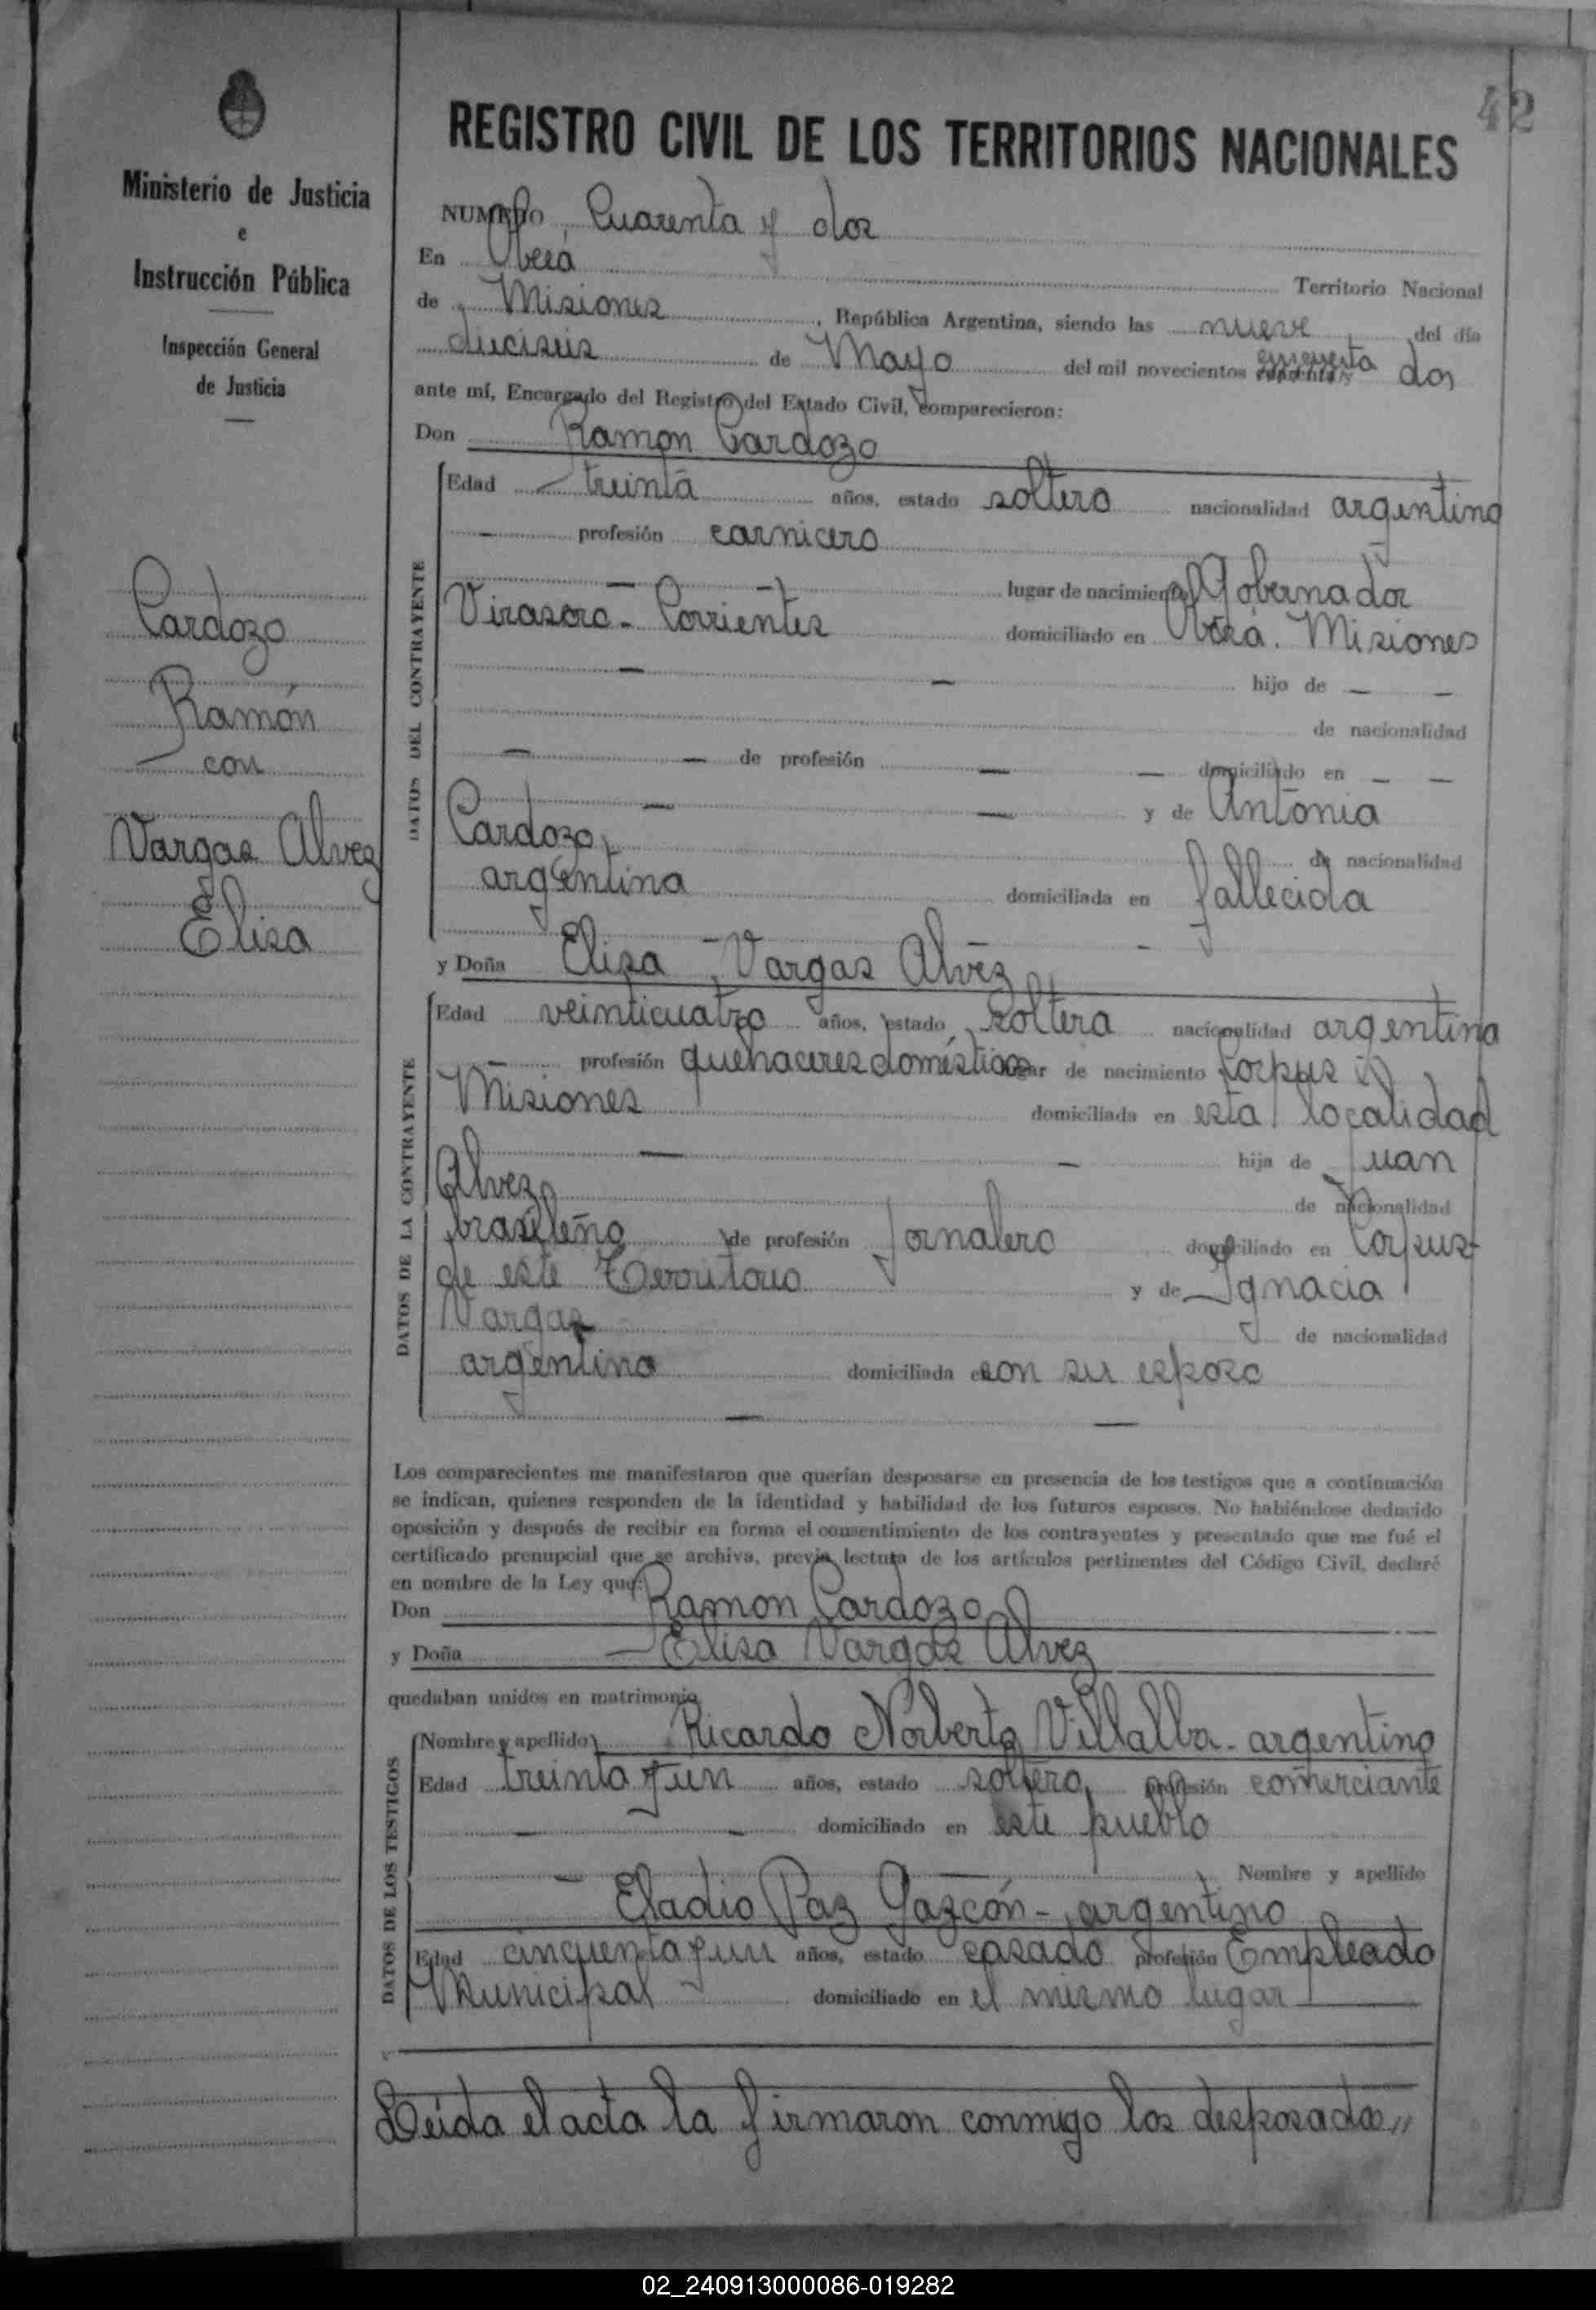 42
Ministerio de Justicia
e
Instrucción Pública
Inspección General
de Justicia
Cardozo
Ramón
con
Vargas Alvez
Elisa
REGISTRO CIVIL DE LOS TERRITORIOS NACIONALES
NUMERO Cuarenta y dos
En Oberá Territorio Nacional
de Misiones, República Argentina, siendo las nueve del día
dieciseis de Mayo del mil novecientos cincuenta dos
ante mí, Encargado del Registro del Estado Civil, comparecieron:
Don Ramon Cardozo
DATOS DEL CONTRAYENTE
Edad treinta años, estado soltero nacionalidad argentino
— profesión carnicero
— — lugar de nacimiento Gobernador
Virasoro - Corrientes domiciliado en Oberá. Misiones
— — hijo de — —
de nacionalidad
— — de profesión — — domiciliado en — —
— — y de Antonia
Cardozo de nacionalidad
argentina domiciliada en fallecida
y Doña Elisa Vargas Alvez
DATOS DE LA CONTRAYENTE
Edad veinticuatro años, estado soltera nacionalidad argentina
— profesión quehaceres domésticos lugar de nacimiento Corpus
Misiones domiciliada en esta localidad
— — hija de Juan
Alvez de nacionalidad
brasileño de profesión Jornalero domiciliado en Corpus
de este Territorio y de Ignacia
Vargas de nacionalidad
argentina domiciliada con su esposo
— —
Los comparecientes me manifestaron que querían desposarse en presencia de los testigos que a continuación
se indican, quienes responden de la identidad y habilidad de los futuros esposos. No habiéndose deducido
oposición y después de recibir en forma el consentimiento de los contrayentes y presentado que me fué el
certificado prenupcial que se archiva, previa lectura de los artículos pertinentes del Código Civil, declaré
en nombre de la Ley que:
Don Ramon Cardozo
y Doña Elisa Vargas Alvez
quedaban unidos en matrimonio
DATOS DE LOS TESTIGOS
Nombre y apellido Ricardo Norberto Villalba - argentino
Edad treinta y un años, estado soltero profesión comerciante
— — domiciliado en este pueblo
— — Nombre y apellido
Eladio Paz Gazcón - argentino
Edad cincuenta y un años, estado casado profesión Empleado
Municipal domiciliado en el mismo lugar
Leída el acta la firmaron conmigo los desposados,,
02_240913000086-019282